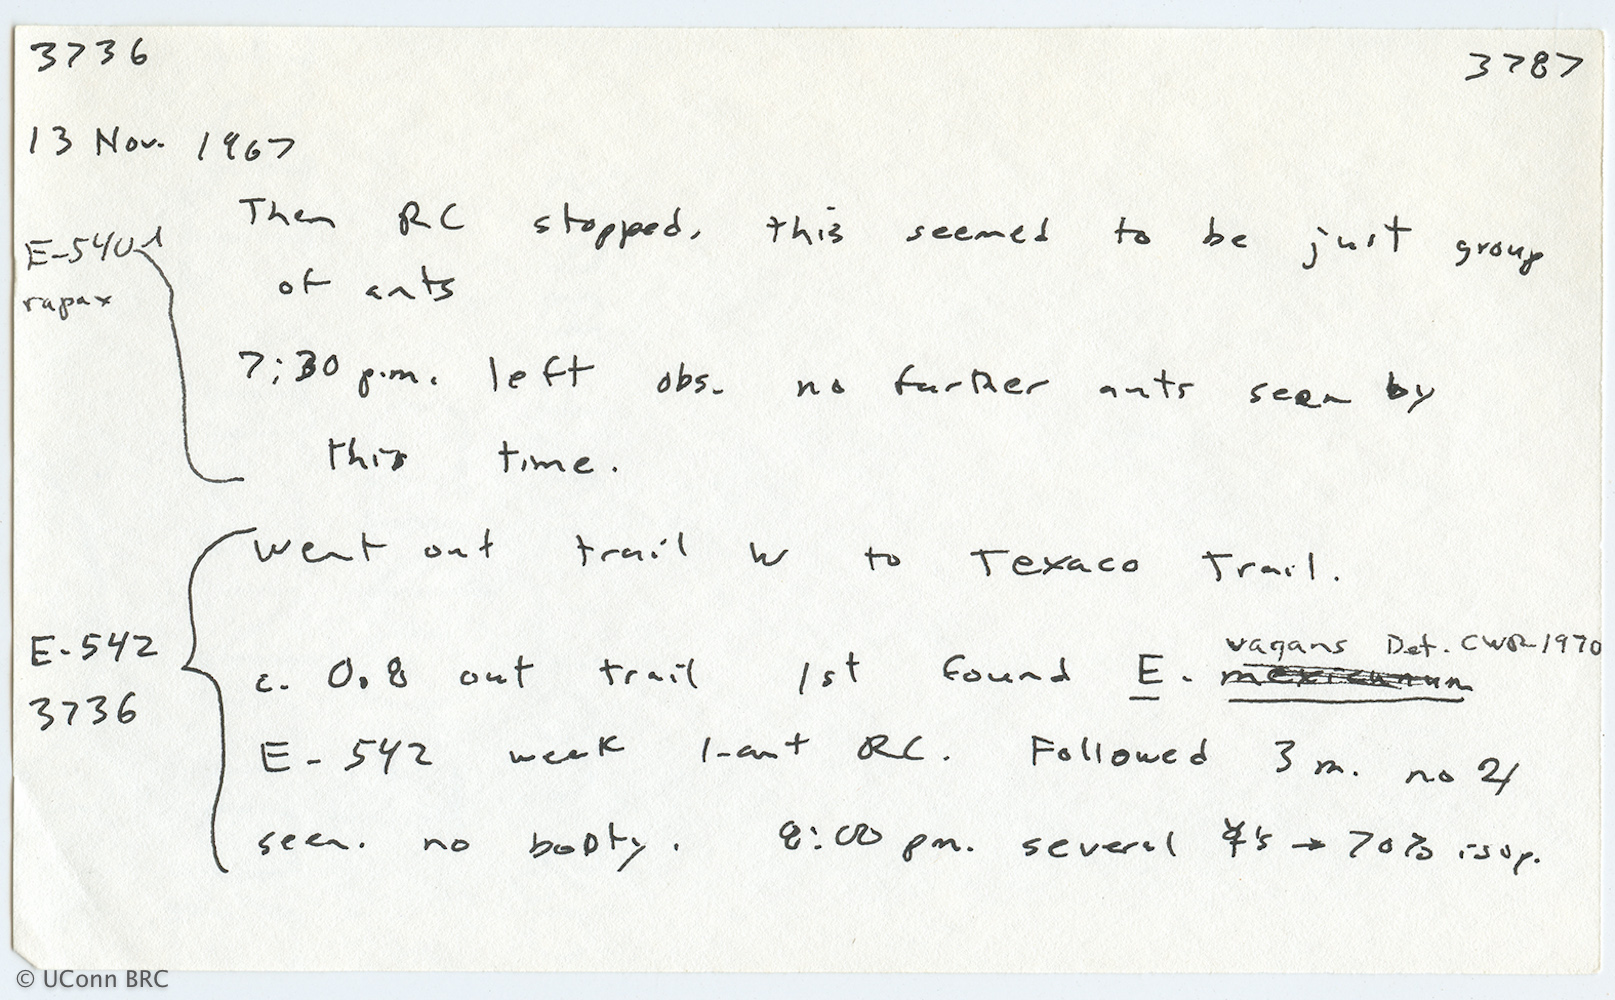 3736 3787
13 Nov. 1967
Then RC stopped, this seemed to be just group
E-540-1
of ants
rapax
7:30 p.m. left obs. no further ants seen by
this time.
Went out trail W to Texaco Trail.
E-542
vagans Det. CWR-1970
c. 0.8 out trail 1st found E. mexicanum
3736
E-542 weak 1-ant RC. Followed 3 m. no
seen. no booty. 8:00 pm. several → 70% isop.
© UConn BRC